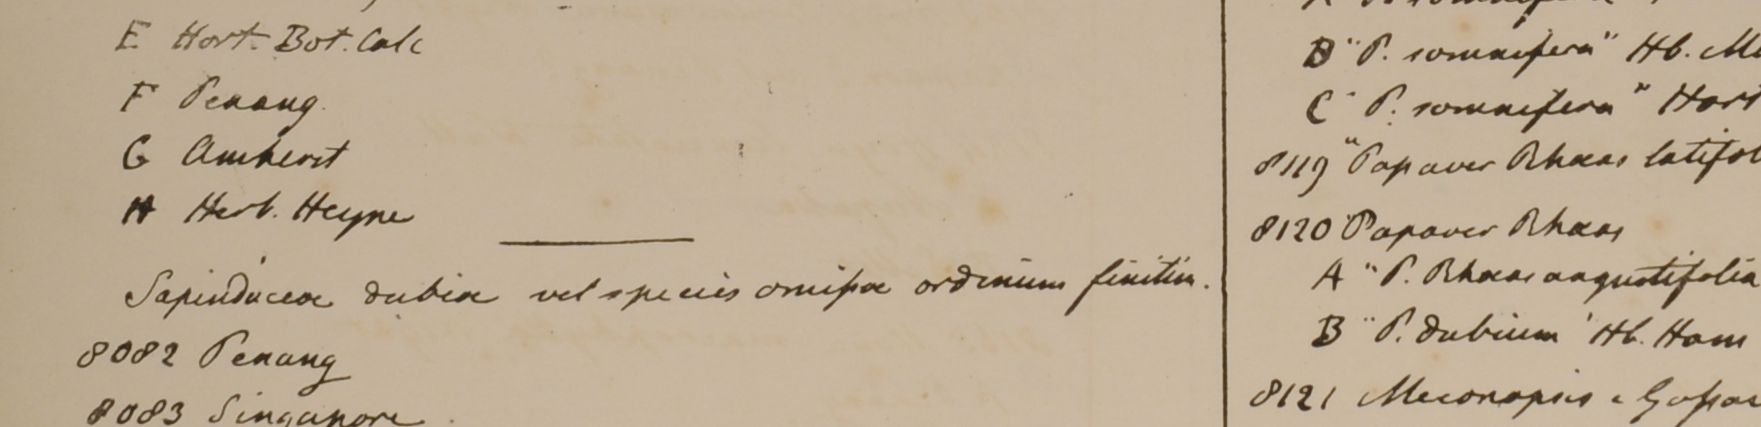 E Hort. Bot. Calc
F Penang.
G Amherst
H Herb. Heyne
Sapindaceae dubiae vel species omissae ordinum finitim.
8082 Penang
8083 Singapore
B "P. somnifera" Hb.
C "P. somnifera" Hort
8119 "Papaver Rhaeas latifol
8120 Papaver Rhaeas
A "P. Rhaeas angustifolia
B "P. dubium" Hb. Ham
8121 Meconopsis